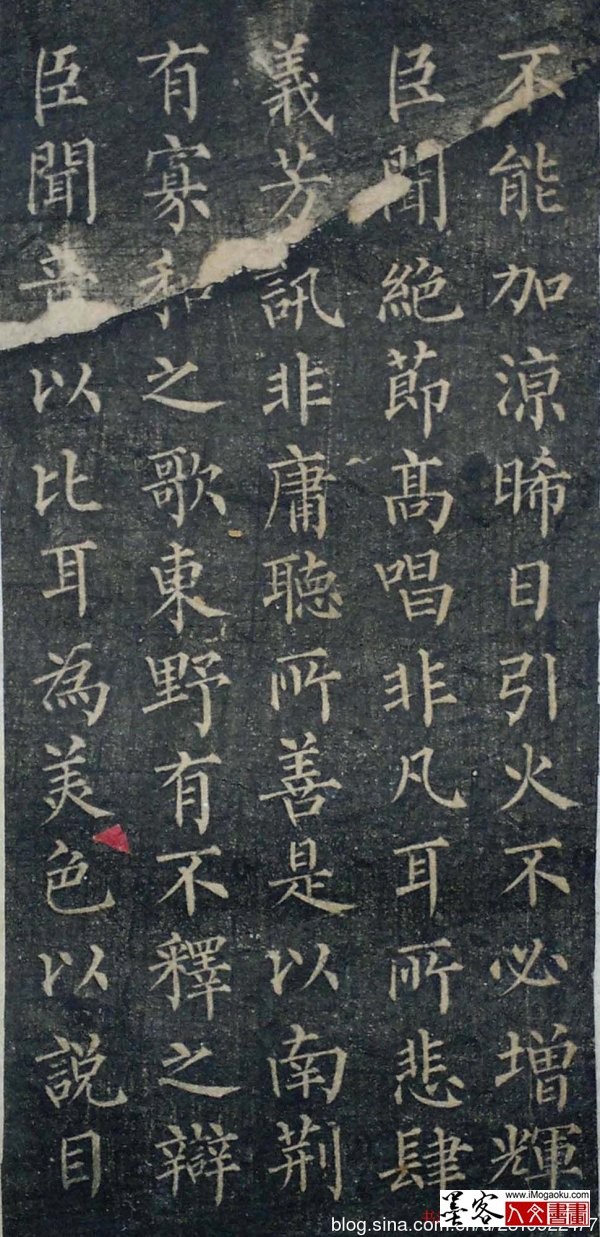 不能加涼晞日引火不必增輝
臣聞絕節髙唱非凡耳所悲肆
義芳訊非庸聴所善是以南荆
有寡和之歌東野有不釋之辯
臣聞音以比耳為美色以說目
墨客 www.iMogaoku.com
人文書畫
blog.sina.com.cn/u/